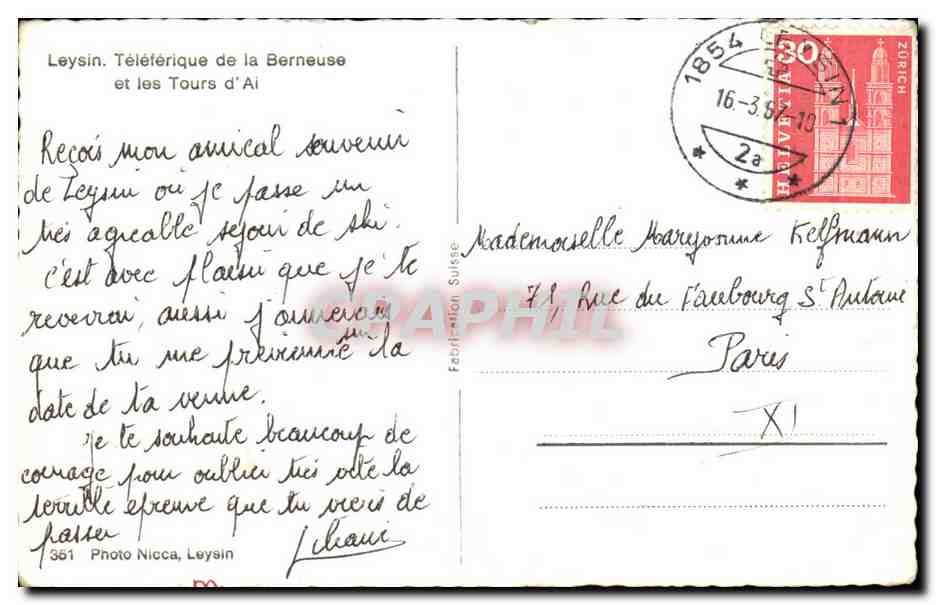 Leysin. Téléférique de la Berneuse
et les Tours d'Aï
Reçois mon amical souvenir
de Leysin où je passe un
très agréable séjour de ski.
c'est avec plaisir que je te
reverrai, aussi j'aimerais
que tu me préviennes sur la
date de ta venue.
Je te souhaite beaucoup de
courage pour oublier très vite la
terrible épreuve que tu viens de
passer
351 Photo Nicca, Leysin
Fabrication Suisse
CPAPHIL
1854 LEYSIN 1
16-3.67-10
2a
30
HELVETIA
ZÜRICH
Mademoiselle Maryvonne Kelfmann
71, Rue du Faubourg St Antoine
Paris
XI